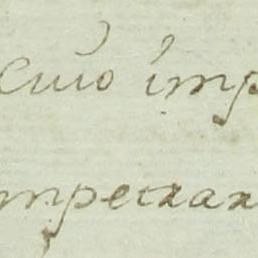 cuio imp
mpetrar